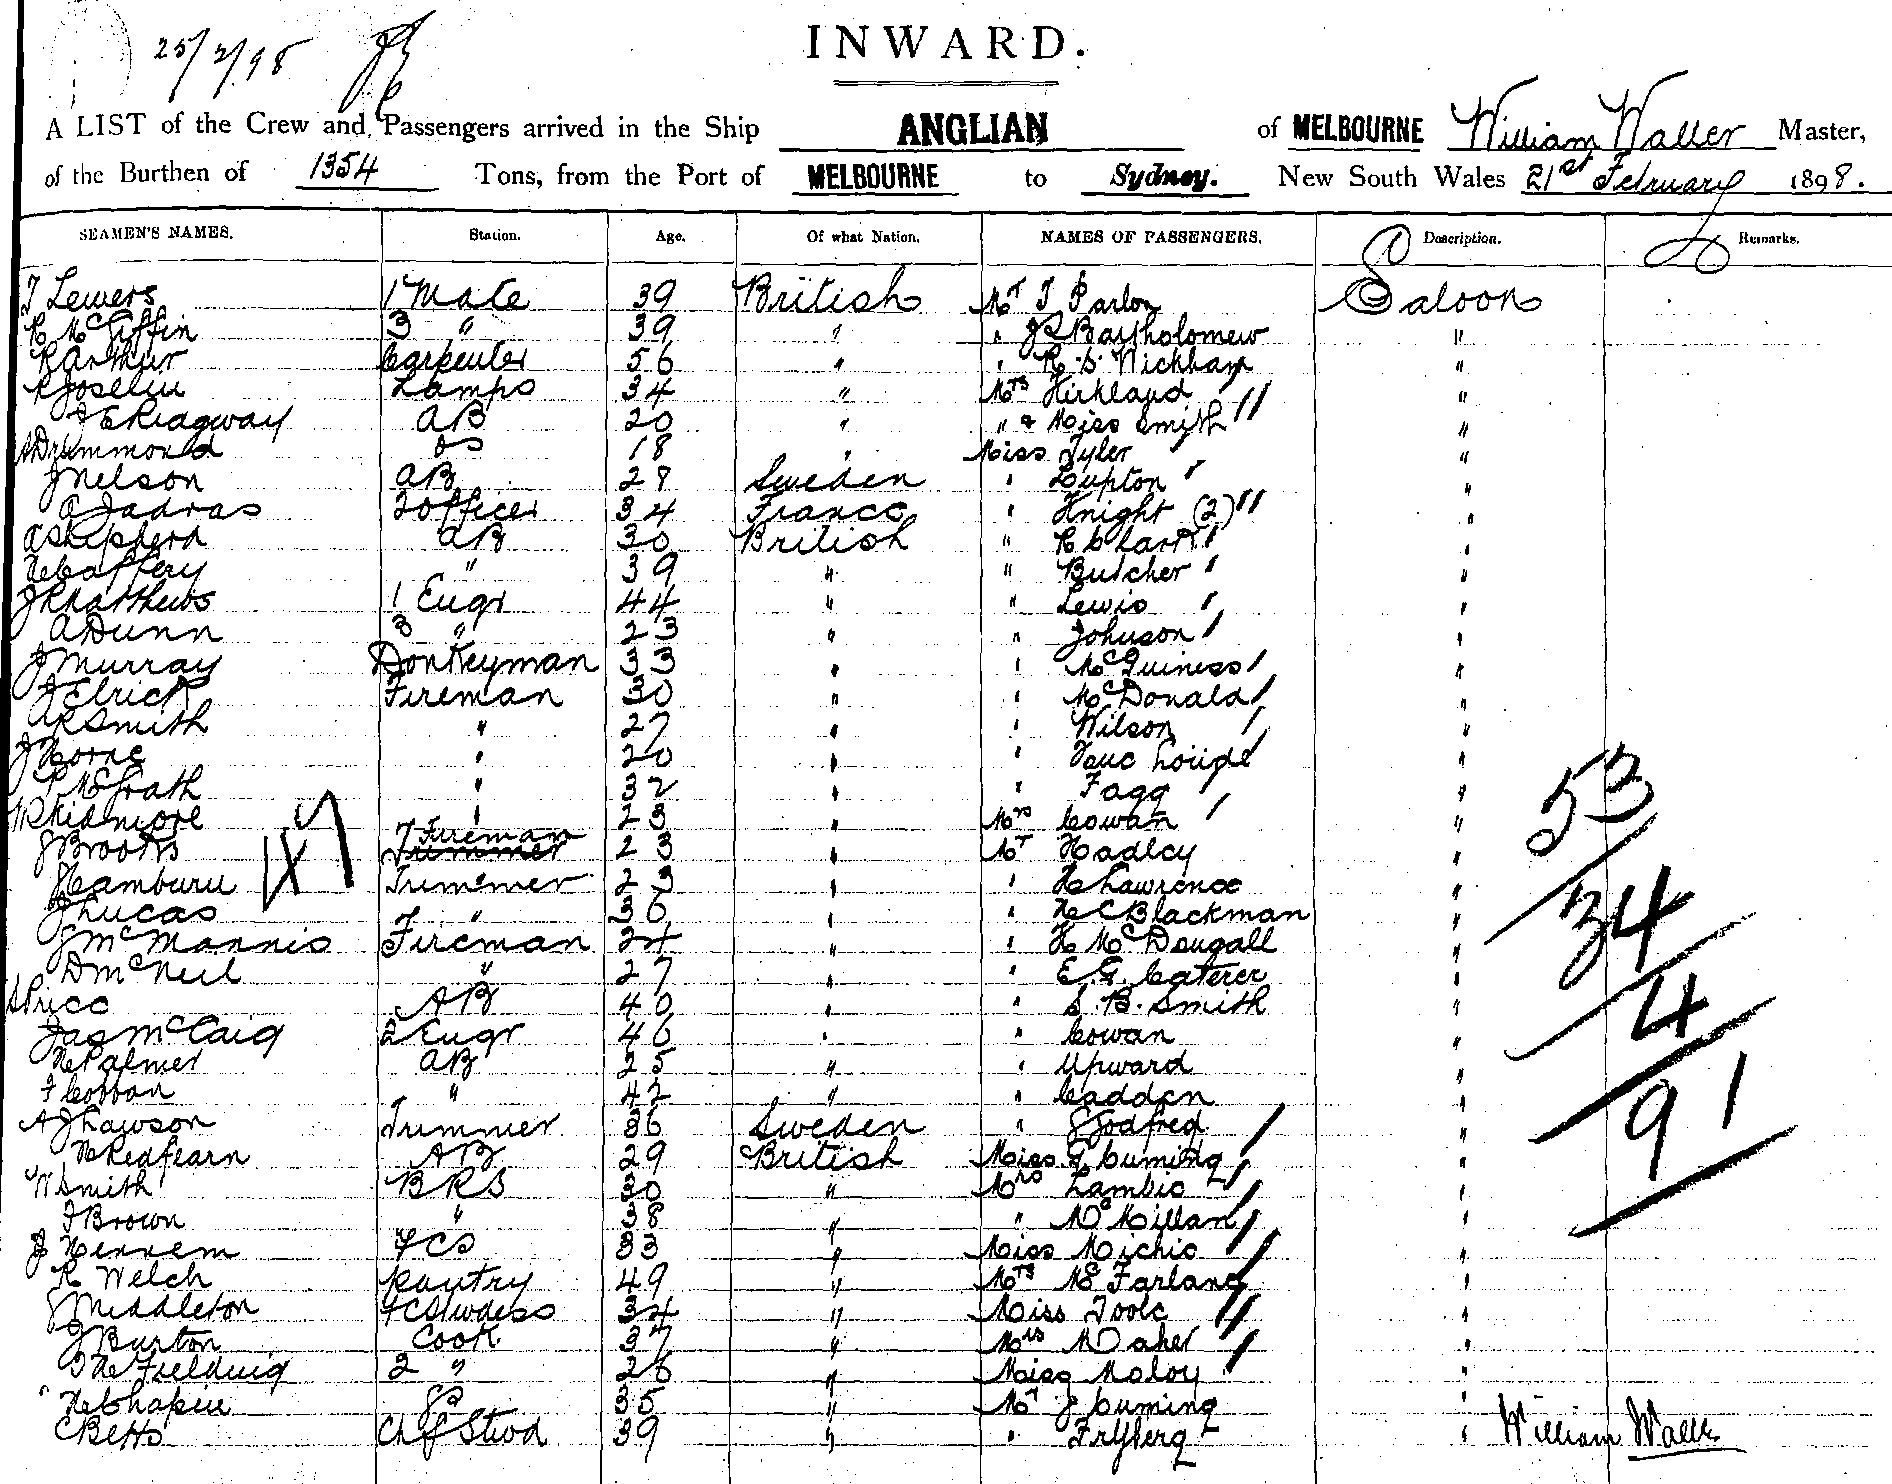 25/2/98
INWARD.
A LIST of the Crew and Passengers arrived in the Ship ANGLIAN of MELBOURNE William Waller Master,
of the Burthen of 1354 Tons, from the Port of MELBOURNE to Sydney. New South Wales 21st February 1898.
SEAMEN'S NAMES. Station. Age. Of what Nation. NAMES OF PASSENGERS. Description. Remarks.
Lewers 1 Mate 39 British Mr T Parlon Saloon
McGiffin 3 " 39 " " Bartholomew "
R Arthur Carpenter 56 " " R. S. Wickham "
Joselin Lamps 34 " Mrs Kirkland "
E Ridgway AB 20 " " & Miss Smith "
Drummond OS 18 " Miss Tyler "
J Nelson AB 28 Sweden " Lupton "
A Jadras 2 officer 34 France " Knight (2) "
A Shepherd AB 30 British " "
H Caffery " 39 " " Butcher "
J R Matthews 1 Engr 44 " " Lewis "
A Dunn 3 " 23 " " Johnson "
J Murray Donkeyman 33 " " McGuiness "
J Elrick Fireman 30 " " McDonald "
A R Smith " 27 " " Wilson "
J Horne " 20 " " "
P McGrath " 32 " " Fagg " 53
W Skidmore " 23 " Mrs Cowan "
J Brooks Fireman 23 " Mr Hadley "
Hamburn Trimmer 23 " " H Lawrence " 34
J Lucas " 36 " " H C Blackman "
J McMannis Fireman 24 " " H McDougall "
D McNeil " 27 " " E. G. Caterer "
S Price AB 40 " " S. B. Smith " 4
Jas McCaig 2 Engr 46 " " Cowan "
H Palmer AB 25 " " Upward "
" 42 " " Cadden " 91
A J Lawson Trimmer 36 Sweden " Godfred "
H Redfearn AB 29 British Miss J Cuming "
W Smith BRS 30 " Mrs Lambie "
J Brown " 38 " " McMillan "
J Hennem FCS 33 " Miss Michie "
R Welch Pantry 49 " Mrs McFarland "
J Middleton 34 " Miss Toole "
J Burton Cook 37 " Mrs Maher "
Fielding 2 " 26 " Miss Maloy "
H Chapin 35 " Mr J Cuming "
C Betts Chf Stwd 39 " " Fryberg " William Waller